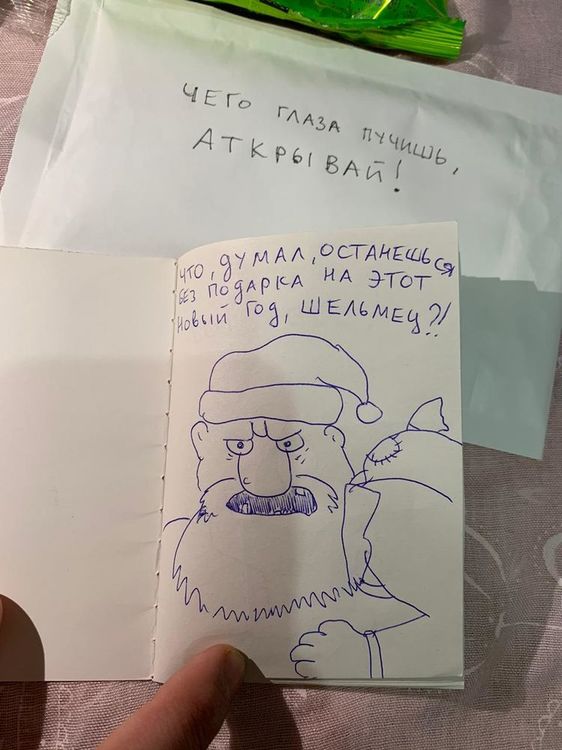 ЧЕГО ГЛАЗА ПУЧИШЬ,
АТКРЫВАЙ!
ЧТО, ДУМАЛ, ОСТАНЕШЬСЯ
БЕЗ ПОДАРКА НА ЭТОТ
НОВЫЙ ГОД, ШЕЛЬМЕЦ?!